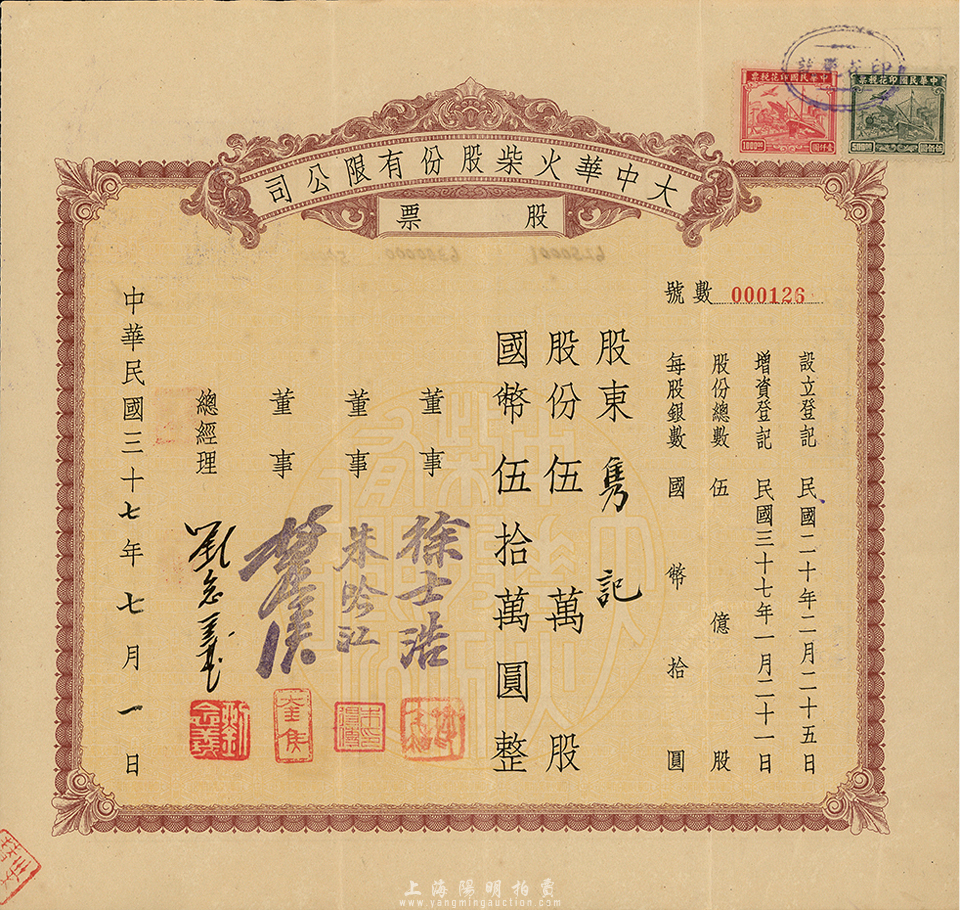 大中華火柴股份有限公司
股票
印花稅訖
中華民國印花稅票
1000
壹仟圓
中華民國印花稅票
500
伍佰圓
號數 000126
設立登記 民國二十年二月二十五日
增資登記 民國三十七年一月二十一日
股份總數 伍億股
每股銀數 國幣拾圓
股東 雋記
股份伍萬股
國幣伍拾萬圓整
董事 徐士浩
董事 朱吟江
董事
總經理 劉念義
中華民國三十七年七月一日
劉念義
上海陽明拍賣
www.yangmingauction.com